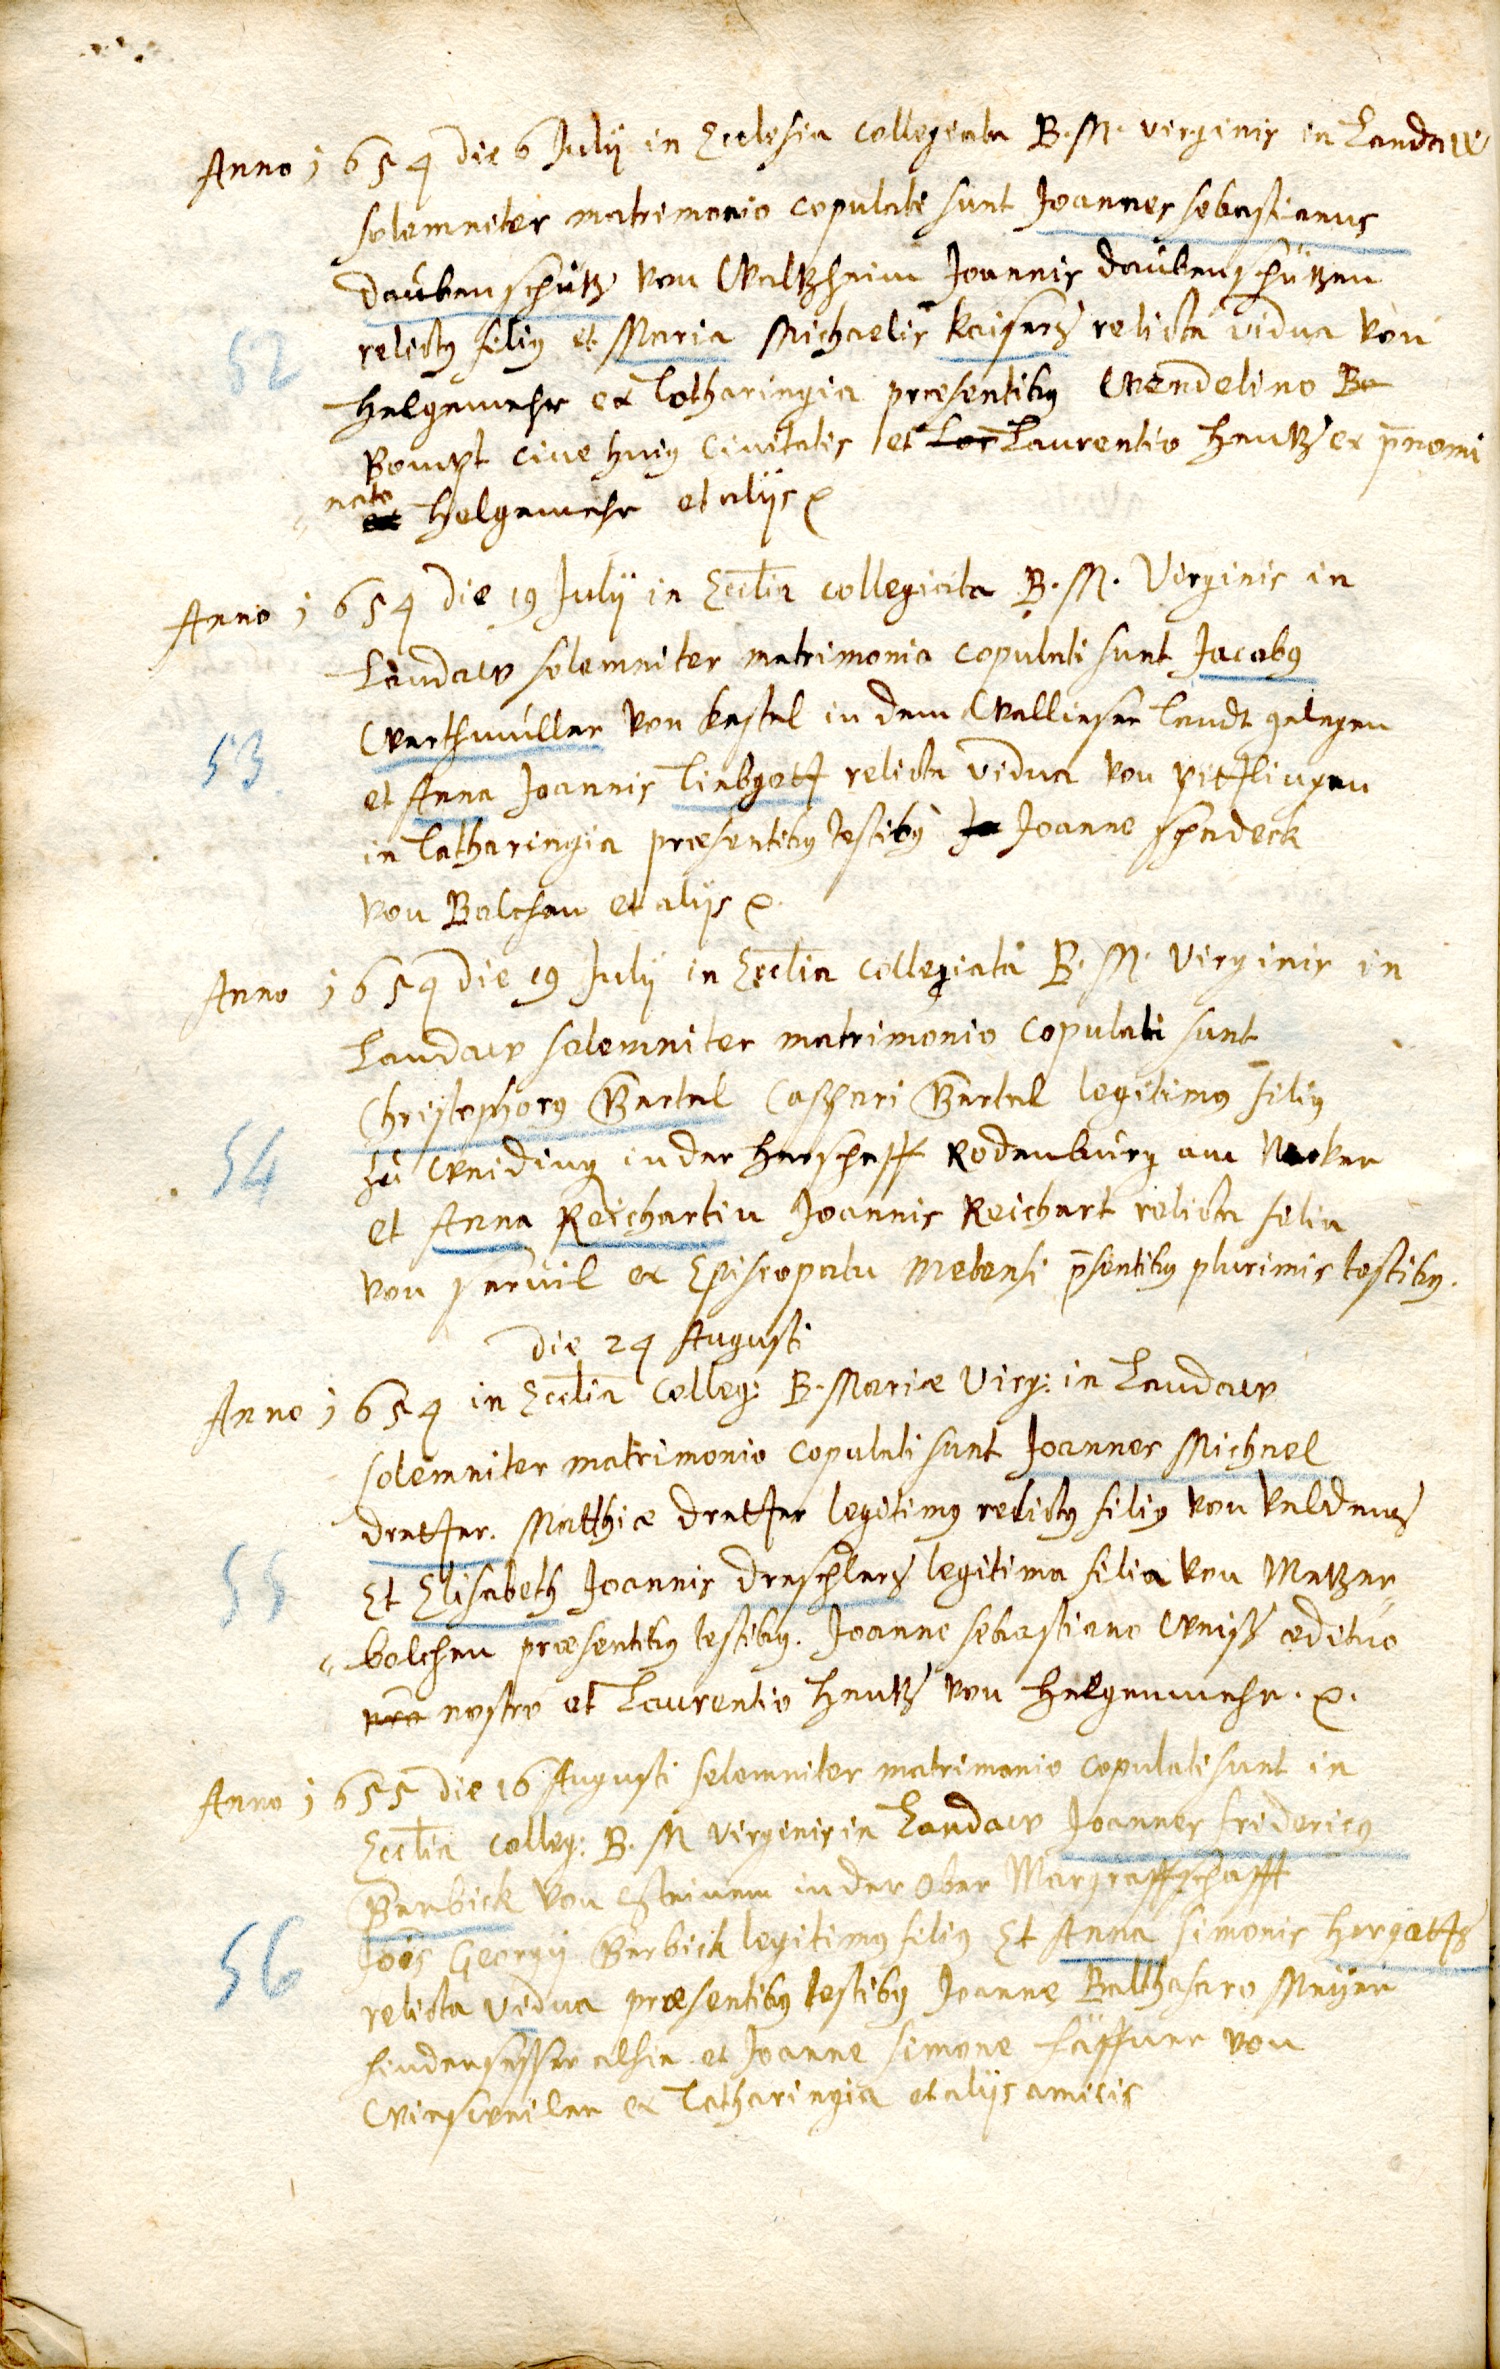 Anno 1654 die 6 Julÿ in Ecclesia collegiata B. M. virginis in Landaw
solemniter matrimonio copulati sunt Joannes sebastianus
daubenschütz von Waltzheim Joannis daubenschützen
relictus filius et Maria Michaelis kaisers relicta vidua von
Helgemehr ex Lotharingia præsentibus Wendelino Be
52
Bompt cive huius Civitatis et Lor Laurentio Hentz ex p̄nomi
nato
ex Helgemehr et alijs
Anno 1654 die 19 Julÿ in Eccl̄ia collegiata B. M. Virginis in
Landaw solemniter matrimonio copulati sunt Jacobus
Warthmüller von kastel in dem Wallinser landt gelegen
53
et Anna Joannis Liebgott relicta vidua von pittlingen
in Latharingia præsentibus testibus Jo Joanne schadeck
von Bolchen et alijs
Anno 1654 die 19 Julij in Eccl̄ia collegiata B. M. Virginis in
Landaw solemniter matrimonio copulati sunt
Christophorus Bartel Caspari Bartel legitimus filius
zu Weiding in der herschafft Rodenburg am Neker
54
et Anna Reichartin Joannis Reichart relicta filia
von ex Episcopatu Metensi p̄sentibus plurimis testibus.
die 24 Augusti
Anno 1654 in Eccl̄ia Colleg: B. Mariæ Virg: in Landaw
solemniter matrimonio copulati sunt Joannes Michael
dretter. Matthiæ dretter legitimus relictus filius von Veldentz
55
Et Elisabeth Joannis dreschlers legitima filia von Metzer„
„bolchen præsentibus testibus. Joanne sebastiano Weiss ædituo
nro nostro et Laurentio Hentz von Helgemmehr.
Anno 1655 die 16 Augusti solemniter matrimonio copulati sunt in
Eccl̄ia colleg: B. M virginis in Landaw Joannes fridericus
Berbick von in der Ober Margraffschafft
56
Jōis Georgij Berbick legitimus filius Et Anna Simonis Hergotts
relicta vidua præsentibus testibus Joanne Balthasaro Meÿer
hindersesser alhie et Joanne simone von
Wiesweiler ex Latharingia et alijs amicis